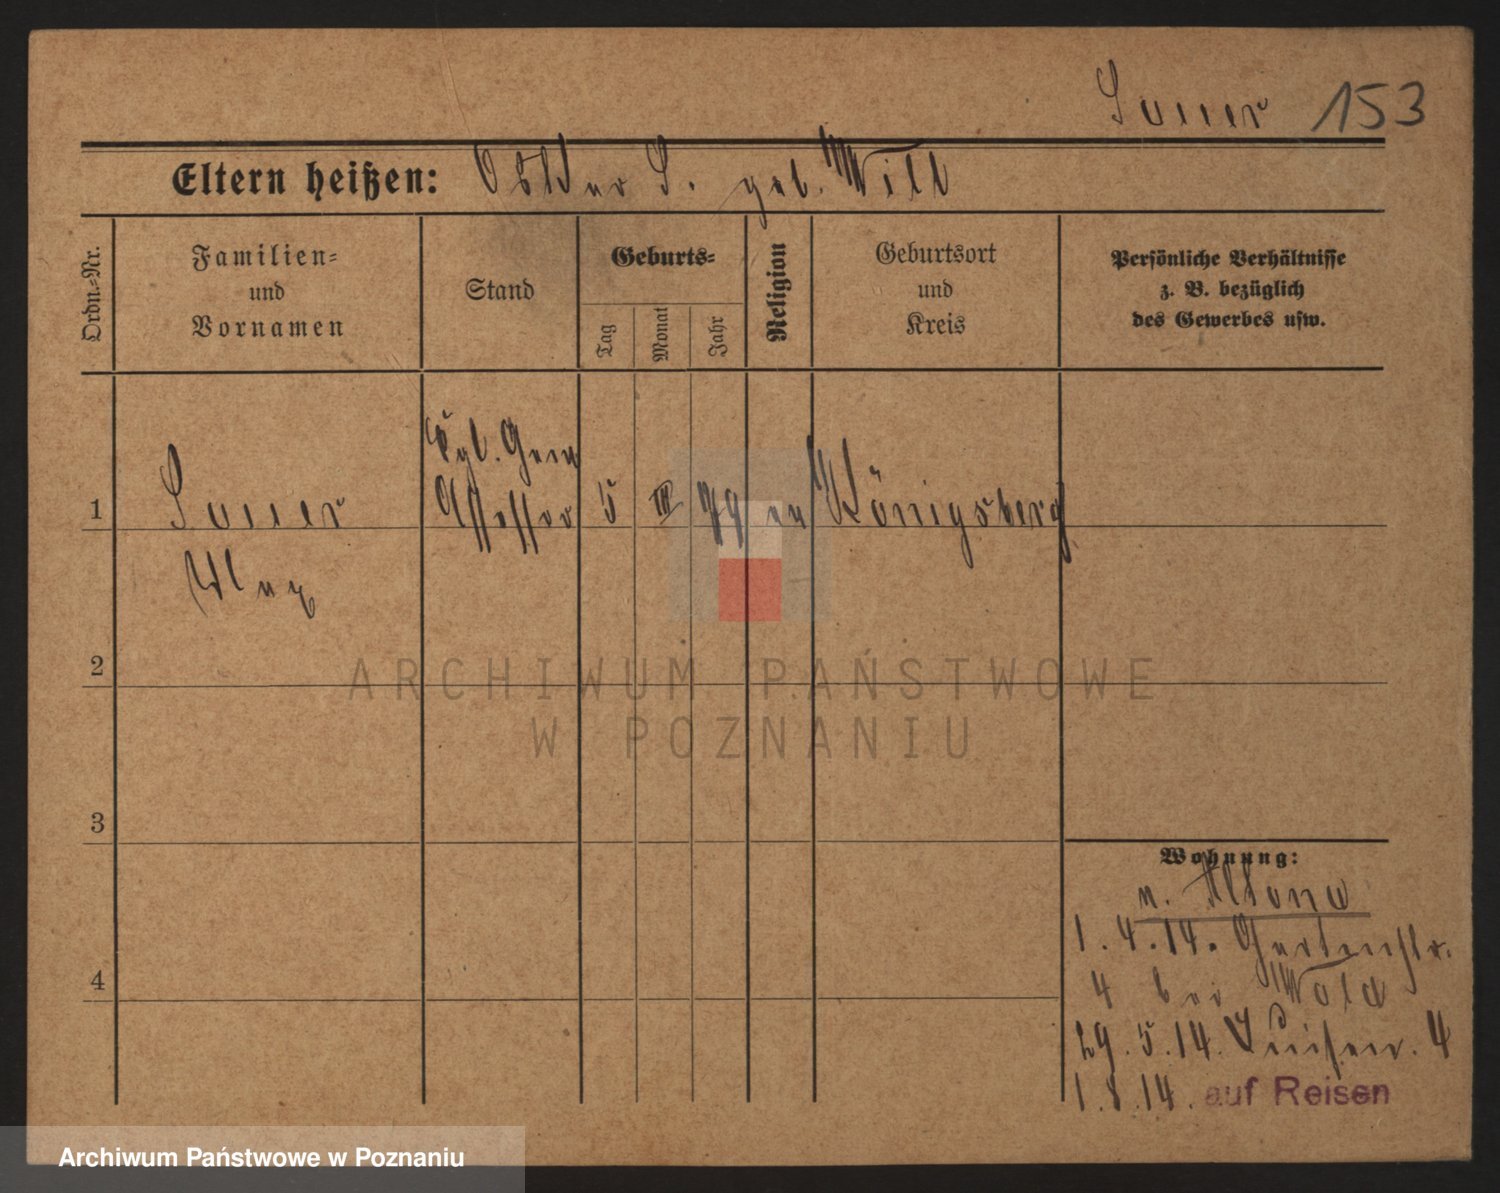 Sauer 153
Eltern heißen: S. geb. Will
Ordn.-Nr.
Familien-
und
Vornamen
Stand
Geburts-
Tag
Monat
Jahr
Religion
Geburtsort
und
Kreis
Persönliche Verhältnisse
z. B. bezüglich
des Gewerbes usw.
Kgl. Gew
1 Sauer Assessor 5 III 79 ev Königsberg
Max
2
3
4
Wohnung:
n. Altona
1.4.14. Gartenstr.
4 bei Wold
29.5.14. Luisen. 4
1.8.14. auf Reisen
ARCHIWUM PAŃSTWOWE
W POZNANIU
Archiwum Państwowe w Poznaniu